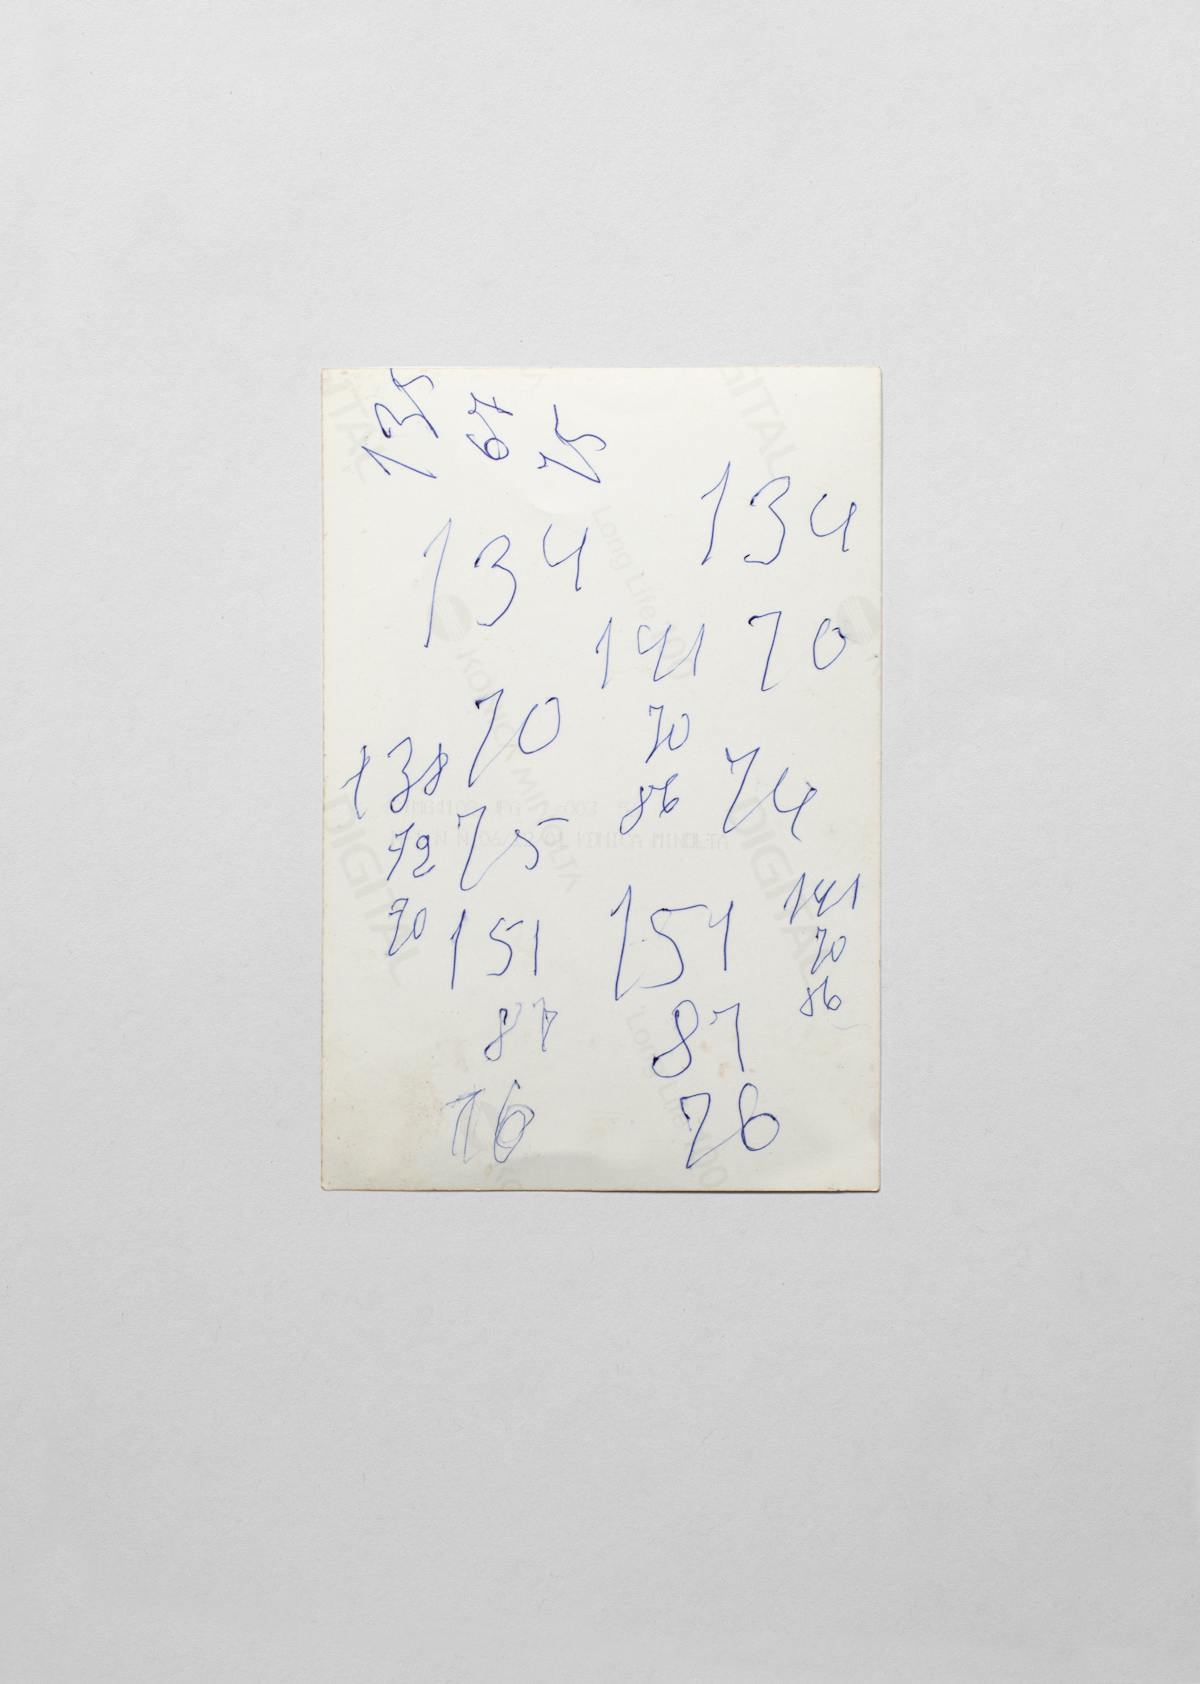 135 67 75
134 134
141 70
70 70
138 86 74
72 75
70 151 151 141
70
86
87 87
76 76
DIGITAL
DIGITAL
DIGITAL
DIGITAL
Long Life 100
KONICA MINOLTA
KONICA MINOLTA